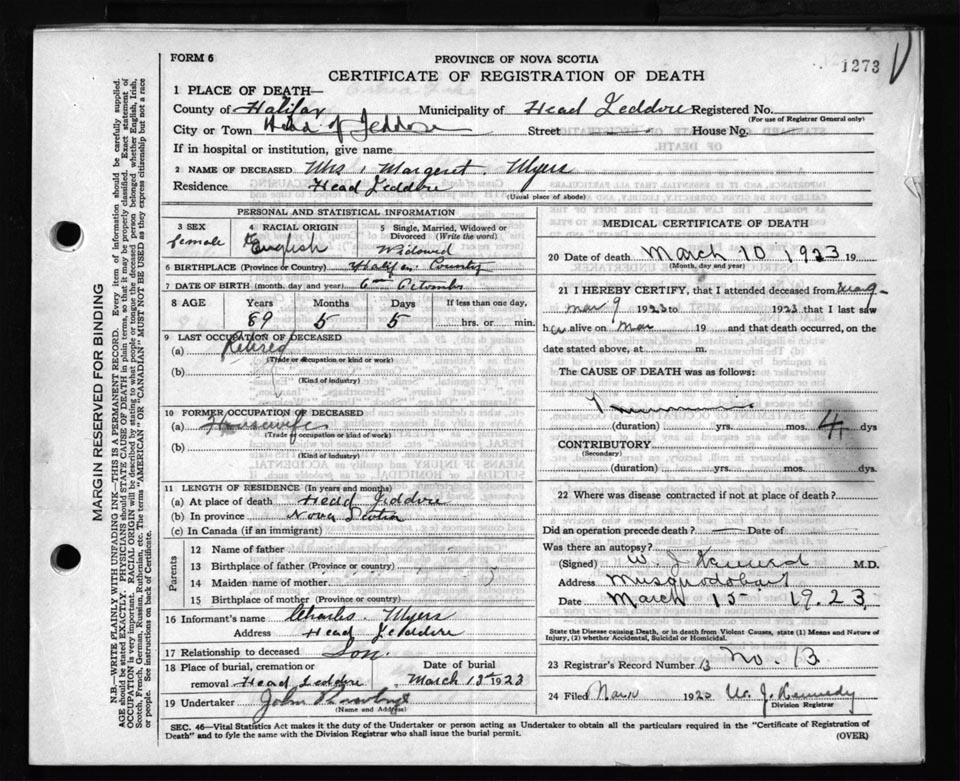 FORM 6
PROVINCE OF NOVA SCOTIA
CERTIFICATE OF REGISTRATION OF DEATH
1273
1 PLACE OF DEATH—
County of Halifax Municipality of Head Jeddore Registered No.
(For use of Registrar General only)
City or Town Head of Jeddore Street House No.
If in hospital or institution, give name
2 NAME OF DECEASED Mrs Margaret Myers
Residence Head Jeddore
(Usual place of abode)
PERSONAL AND STATISTICAL INFORMATION
3 SEX 4 RACIAL ORIGIN 5 Single, Married, Widowed or Divorced (Write the word)
female English Widowed
6 BIRTHPLACE (Province or Country) Halifax County
7 DATE OF BIRTH (month, day and year)
8 AGE Years Months Days If less than one day,
89 5 5 hrs. or min.
9 LAST OCCUPATION OF DECEASED
(a) Retired
(Trade or occupation or kind or work)
(b)
(Kind of industry)
10 FORMER OCCUPATION OF DECEASED
(a) Housewife
(Trade or occupation or kind or work)
(b)
(Kind of industry)
11 LENGTH OF RESIDENCE (In years and months)
(a) At place of death Head Jeddore
(b) In province Nova Scotia
(c) In Canada (if an immigrant)
Parents
12 Name of father
13 Birthplace of father (Province or country)
14 Maiden name of mother
15 Birthplace of mother (Province or country)
16 Informant's name Charles Myers
Address Head Jeddore
17 Relationship to deceased Son
18 Place of burial, cremation or Date of burial
removal Head Jeddore March 13 1923
19 Undertaker John
(Name and Address)
MEDICAL CERTIFICATE OF DEATH
20 Date of death March 10 1923 19
(Month, day and year)
21 I HEREBY CERTIFY, that I attended deceased from
Mar 9 1923 to 1923 that I last saw
h er alive on Mar 19 and that death occurred, on the
date stated above, at m.
The CAUSE OF DEATH was as follows:
(duration) yrs. mos. 4 dys
CONTRIBUTORY
(Secondary)
(duration) yrs. mos. dys.
22 Where was disease contracted if not at place of death?
Did an operation precede death? Date of
Was there an autopsy?
(Signed) W. J. M.D.
Address Musquodoboit
Date March 15 1923
State the Disease causing Death, or in death from Violent Causes, state (1) Means and Nature of
Injury, (2) whether Accidental, Suicidal or Homicidal.
23 Registrar's Record Number 13 No. 13
24 Filed 192 W. J. Kennedy
Division Registrar
SEC. 46—Vital Statistics Act makes it the duty of the Undertaker or person acting as Undertaker to obtain all the particulars required in the "Certificate of Registration of
Death" and to fyle the same with the Division Registrar who shall issue the burial permit.
(OVER)
MARGIN RESERVED FOR BINDING
N.B.—WRITE PLAINLY WITH UNFADING INK—THIS IS A PERMANENT RECORD. Every item of information should be carefully supplied.
AGE should be stated EXACTLY. PHYSICIANS should STATE CAUSE OF DEATH in plain terms, so that it may be properly classified. Exact statement of
OCCUPATION is very important. RACIAL ORIGIN will be described by stating to what people or tongue the deceased person belonged whether English, Irish,
Scotch, French, German, Russian, Ruthenian, etc. The terms "AMERICAN" OR "CANADIAN" MUST NOT BE USED as they express citizenship but not a race
or people. See instructions on back of Certificate.